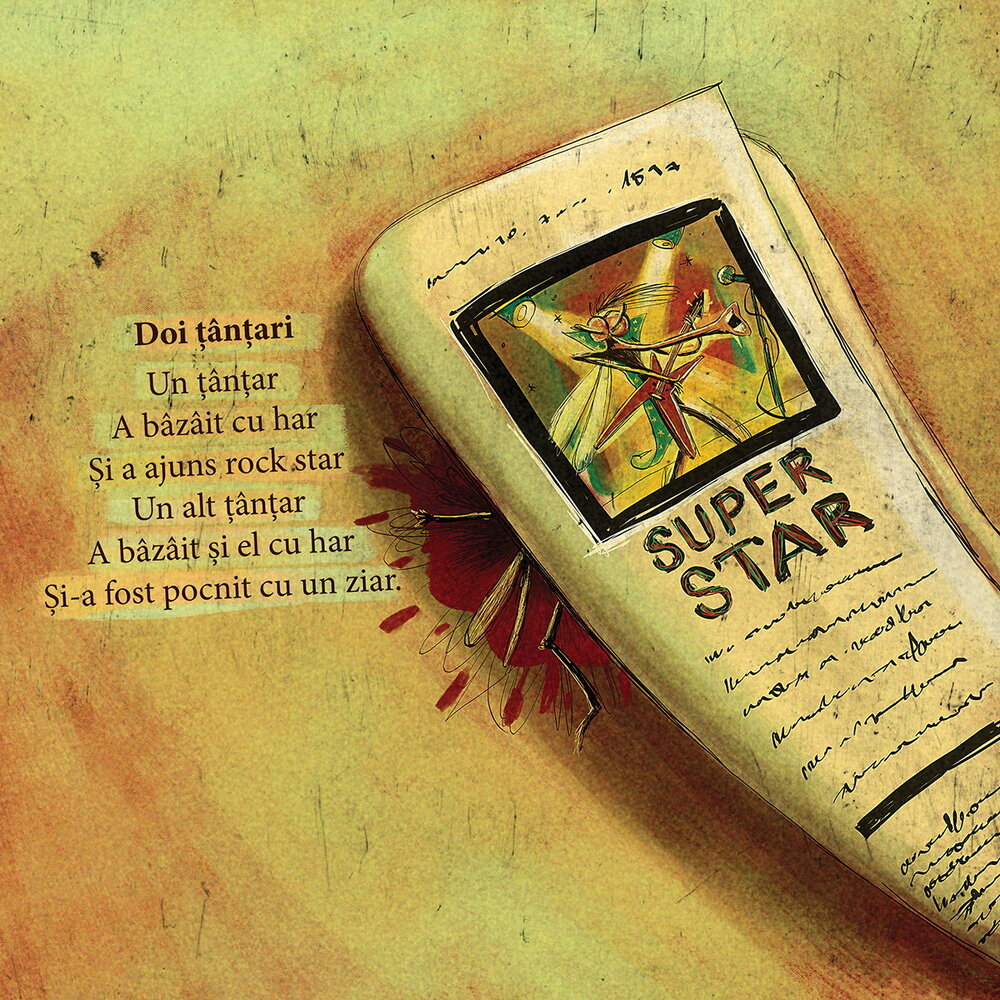 Doi țânțari
Un țânțar
A bâzâit cu har
Și a ajuns rock star
Un alt țânțar
A bâzâit și el cu har
Și-a fost pocnit cu un ziar.
SUPER
STAR